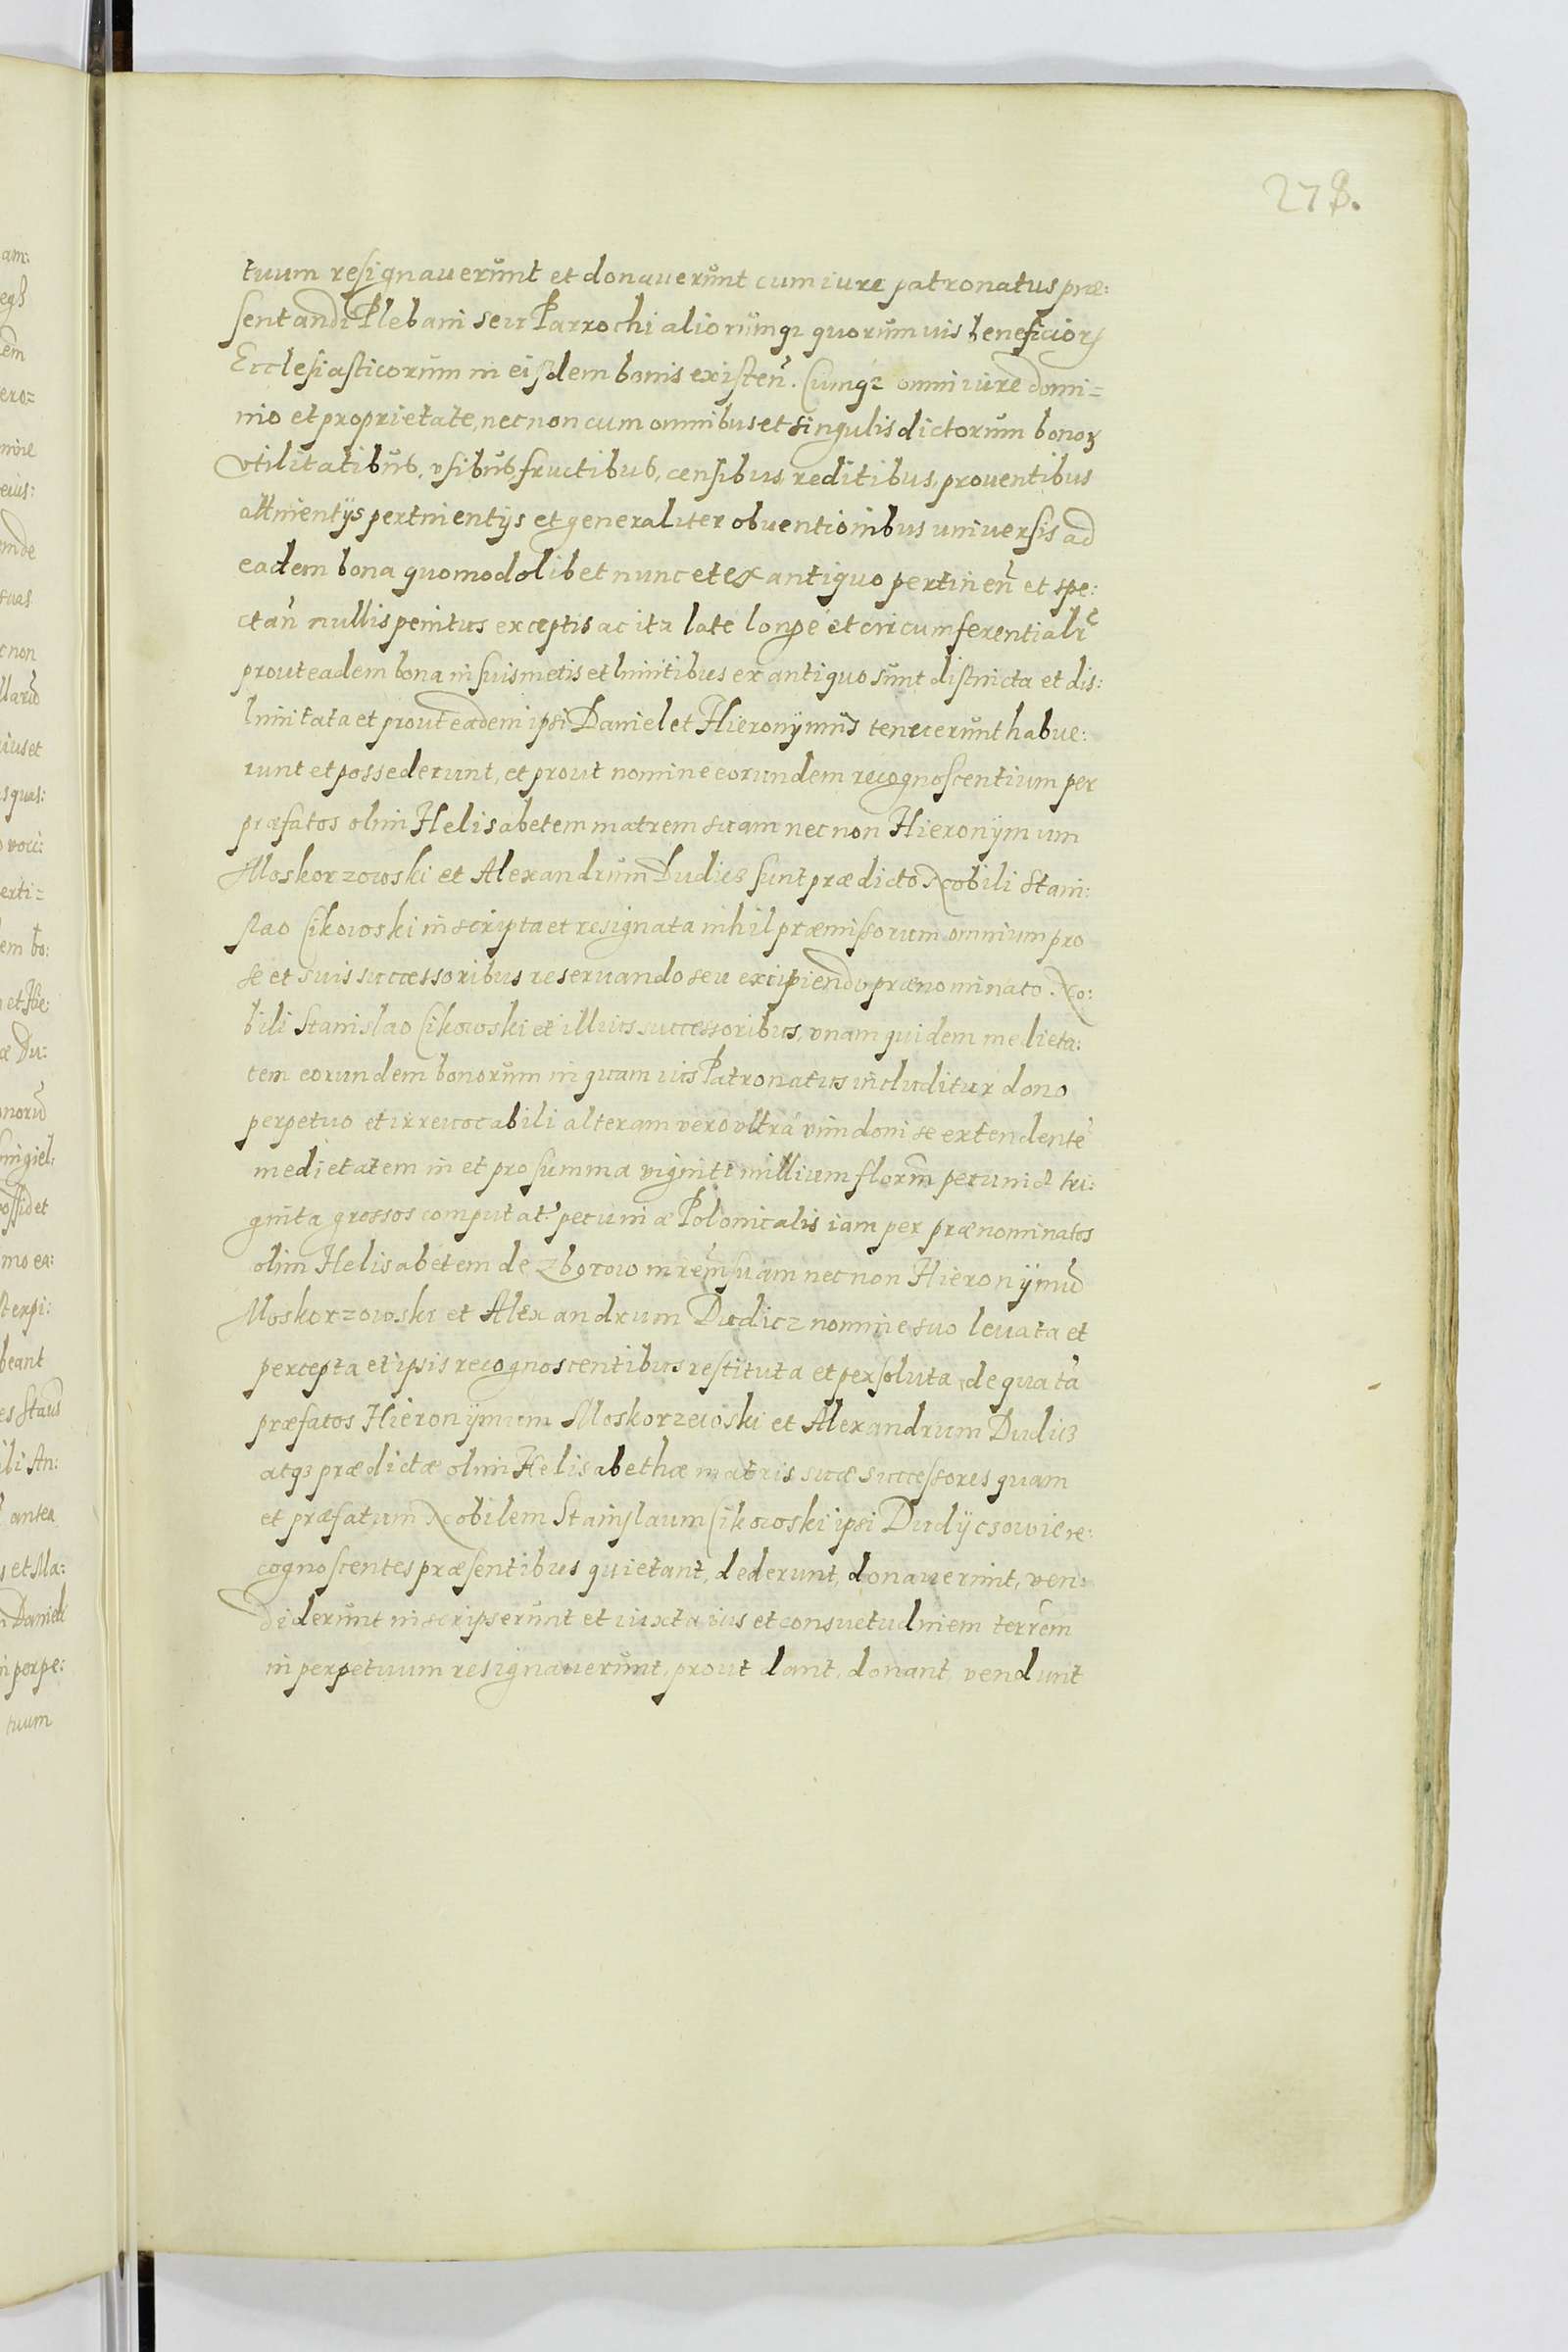 278.
tuum resignauerunt et donauerunt cum iure patronatus præ:
sentandi Plebani seu Parrochi aliorumqȝ quorumuis beneficiorȝ
Ecclesiasticorum in eisdem bonis existen̄. Cumqȝ omni iure domi=
nio et proprietate, necnon cum omnibus et singulis dictorum bonorȝ
vtilitatibus, vsibus, fructibus, censibus, reditibus, prouentibus
attinentijs pertinentijs et generaliter obuentionibus uniuersis ad
eadem bona quomodolibet nunc et ex antiquo pertinen̄ et spe:
ctan̄ nullis penitus exceptis ac ita late longe et circumferentialr̄
prout eadem bona in suis metis et limitibus ex antiquo sunt districta et dis:
limitata et prout eadem ipsi Daniel et Hieronymus tenuerunt habue:
runt et possederunt, et prout nomine eorundem recognoscentium per
præfatos olim Helisabetem matrem suam nec non Hieronÿmum
Moskorzowski et Alexandrum Dudicz sunt prædicto Nobili Stani:
slao Cikowski inscripta et resignata nihil præmissorum omnium pro
se et suis successoribus reseruando seu excipiendo prænominato No:
bili Stanislao Cikowski et illius successoribus, vnam quidem medieta:
tem eorundem bonorum in quam ius Patronatus includitur dono
perpetuo et irreuocabili alteram vero vltra vim doni se extendentē
medietatem in et pro summa viginti millium florm̄ pecuniæ tri:
ginta grossos computat. pecuniæ Polonicalis iam per prænominatos
olim Helisabetem de Zborow mr̄em suam nec non Hieronÿmū
Moskorzowski et Alexandrum Dudicz nomine suo leuata et
percepta et ipsis recognoscentibus restituta et persoluta, de qua tā
præfatos Hieronÿmum Moskorzewski et Alexandrum Dudicz
atqȝ prædictæ olim Helisabethæ matris suæ successores quam
et præfatum Nobilem Stanislaum Cikowski ipsi Dudÿcsowie re:
cognoscentes præsentibus quietant, dederunt, donauerunt, ven:
diderunt inscripserunt et iuxta ius et consuetudinem terr̄em
in perpetuum resignauerunt, prout dant, donant vendunt